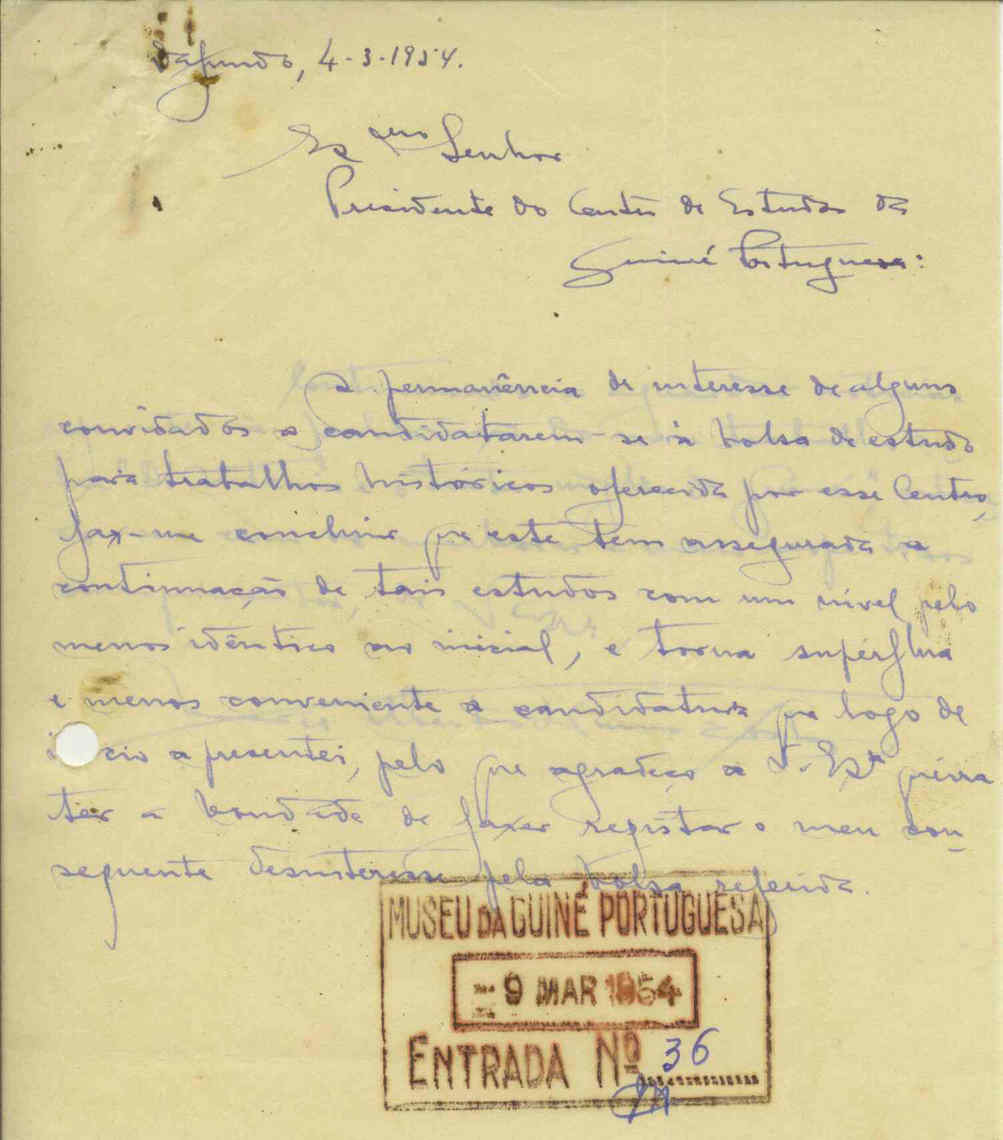 Dafundo, 4-3-1954.
Exmo Senhor
Presidente do Centro de Estudos da
Guiné Portuguesa:
A permanência de interesse de alguns
convidados a candidatarem-se à bolsa de estudo
para trabalhos históricos oferecida por esse Centro,
faz-me concluir que este tem assegurada a
continuação de tais estudos com um nível, pelo
menos idêntico ao inicial, e torna supérflua
e menos conveniente a candidatura que logo de
i cio apresentei, pelo que agradeço a V. Exª queira
ter a bondade de fazer registar o meu con-
sequente desinteresse pela bolsa referida.
MUSEU DA GUINÉ PORTUGUESA
- 9 MAR 1954
ENTRADA Nº 36